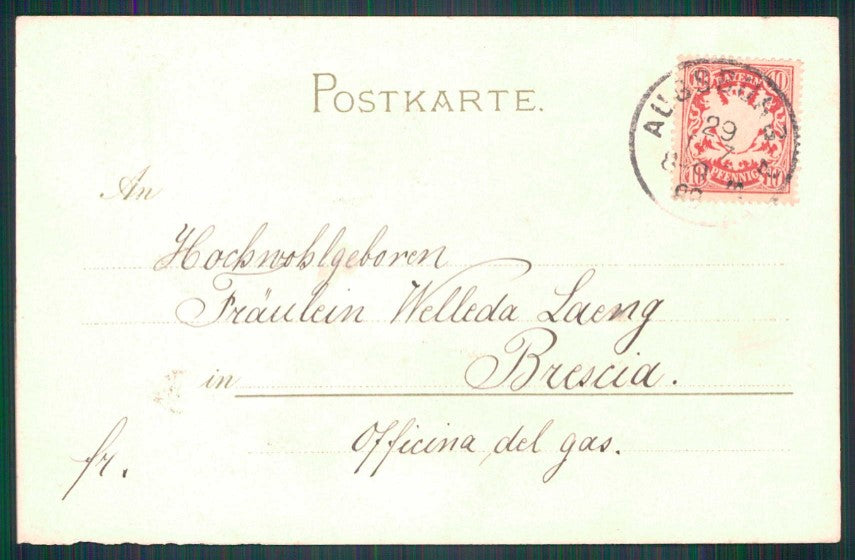 POSTKARTE.
AUGSBURG 2
29
7
8-9
10 10
10 PFENNIG 10
An
Hochwohlgeboren
Fräulein Welleda Laeng
in Brescia.
Officina del gas.
fr.